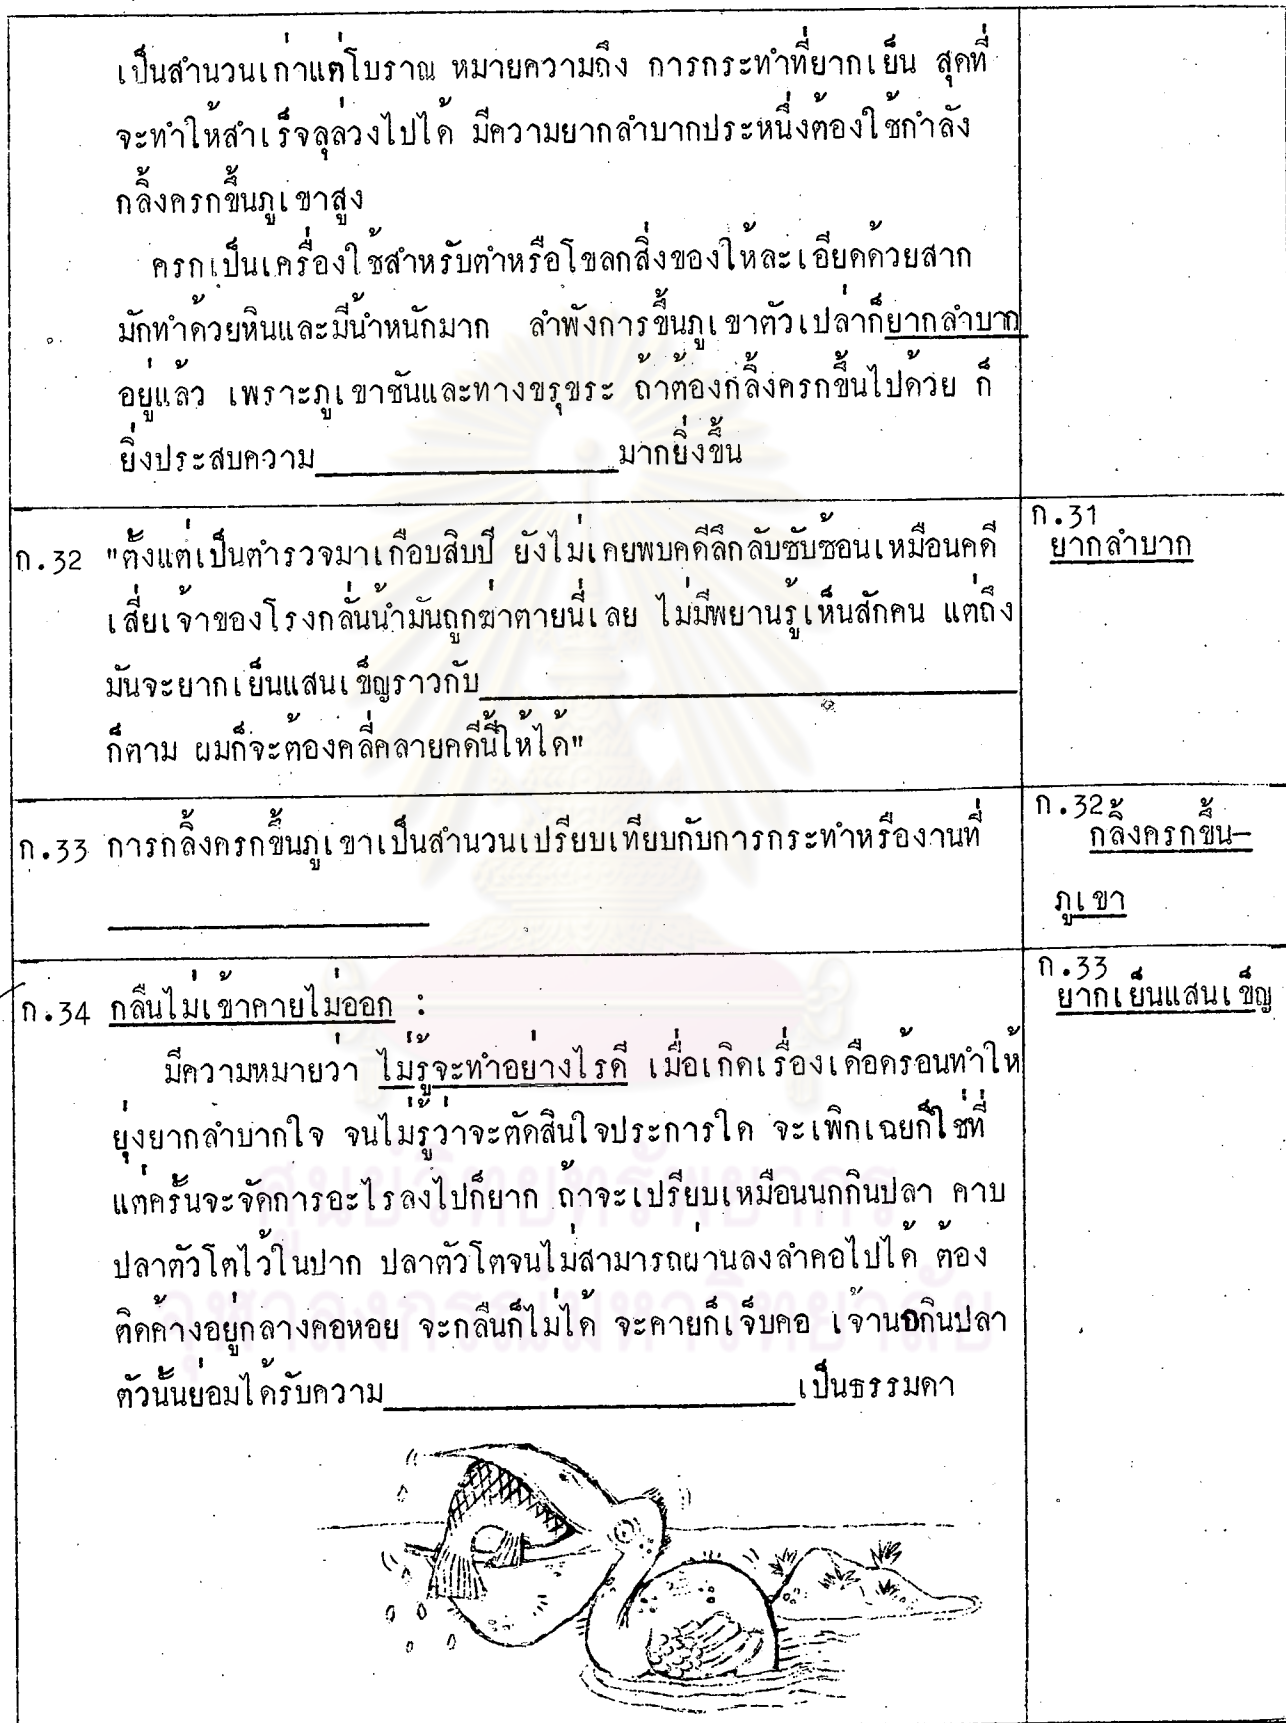 เป็นสำนวนเก่าแต่โบราณ หมายความถึง การกระทำที่ยากเย็น สุดที่
จะทำให้สำเร็จลุล่วงไปได้ มีความยากลำบากประหนึ่งต้องใช้กำลัง
กลิ้งครกขึ้นภูเขาสูง
ครกเป็นเครื่องใช้สำหรับตำหรือโขลกสิ่งของให้ละเอียดด้วยสาก
มักทำด้วยหินและมีน้ำหนักมาก ลำพังการขึ้นภูเขาตัวเปล่าก็ยากลำบาก
อยู่แล้ว เพราะภูเขาชันและทางขรุขระ ถ้าต้องกลิ้งครกขึ้นไปด้วย ก็
ยิ่งประสบความ____________________มากยิ่งขึ้น
ก.31
ยากลำบาก
ก.32 "ตั้งแต่เป็นตำรวจมาเกือบสิบปี ยังไม่เคยพบคดีลึกลับซับซ้อนเหมือนคดี
เสี่ยเจ้าของโรงกลั่นน้ำมันถูกฆ่าตายนี่เลย ไม่มีพยานรู้เห็นสักคน แต่ถึง
มันจะยากเย็นแสนเข็ญราวกับ____________________
ก็ตาม ผมก็จะต้องคลี่คลายคดีนี้ให้ได้"
ก.32
กลิ้งครกขึ้น-
ภูเขา
ก.33 การกลิ้งครกขึ้นภูเขาเป็นสำนวนเปรียบเทียบกับการกระทำหรืองานที่
____________________
ก.33
ยากเย็นแสนเข็ญ
ก.34 กลืนไม่เข้าคายไม่ออก :
มีความหมายว่า ไม่รู้จะทำอย่างไรดี เมื่อเกิดเรื่องเดือดร้อนทำให้
ยุ่งยากลำบากใจ จนไม่รู้ว่าจะตัดสินใจประการใด จะเพิกเฉยก็ใช่ที่
แต่ครั้นจะจัดการอะไรลงไปก็ยาก ถ้าจะเปรียบเหมือนนกกินปลา คาบ
ปลาตัวโตไว้ในปาก ปลาตัวโตจนไม่สามารถผ่านลงลำคอไปได้ ต้อง
ติดค้างอยู่กลางคอหอย จะกลืนก็ไม่ได้ จะคายก็เจ็บคอ เจ้านกกินปลา
ตัวนั้นย่อมได้รับความ____________________เป็นธรรมดา
ศูนย์วิทยทรัพยากร
จุฬาลงกรณ์มหาวิทยาลัย